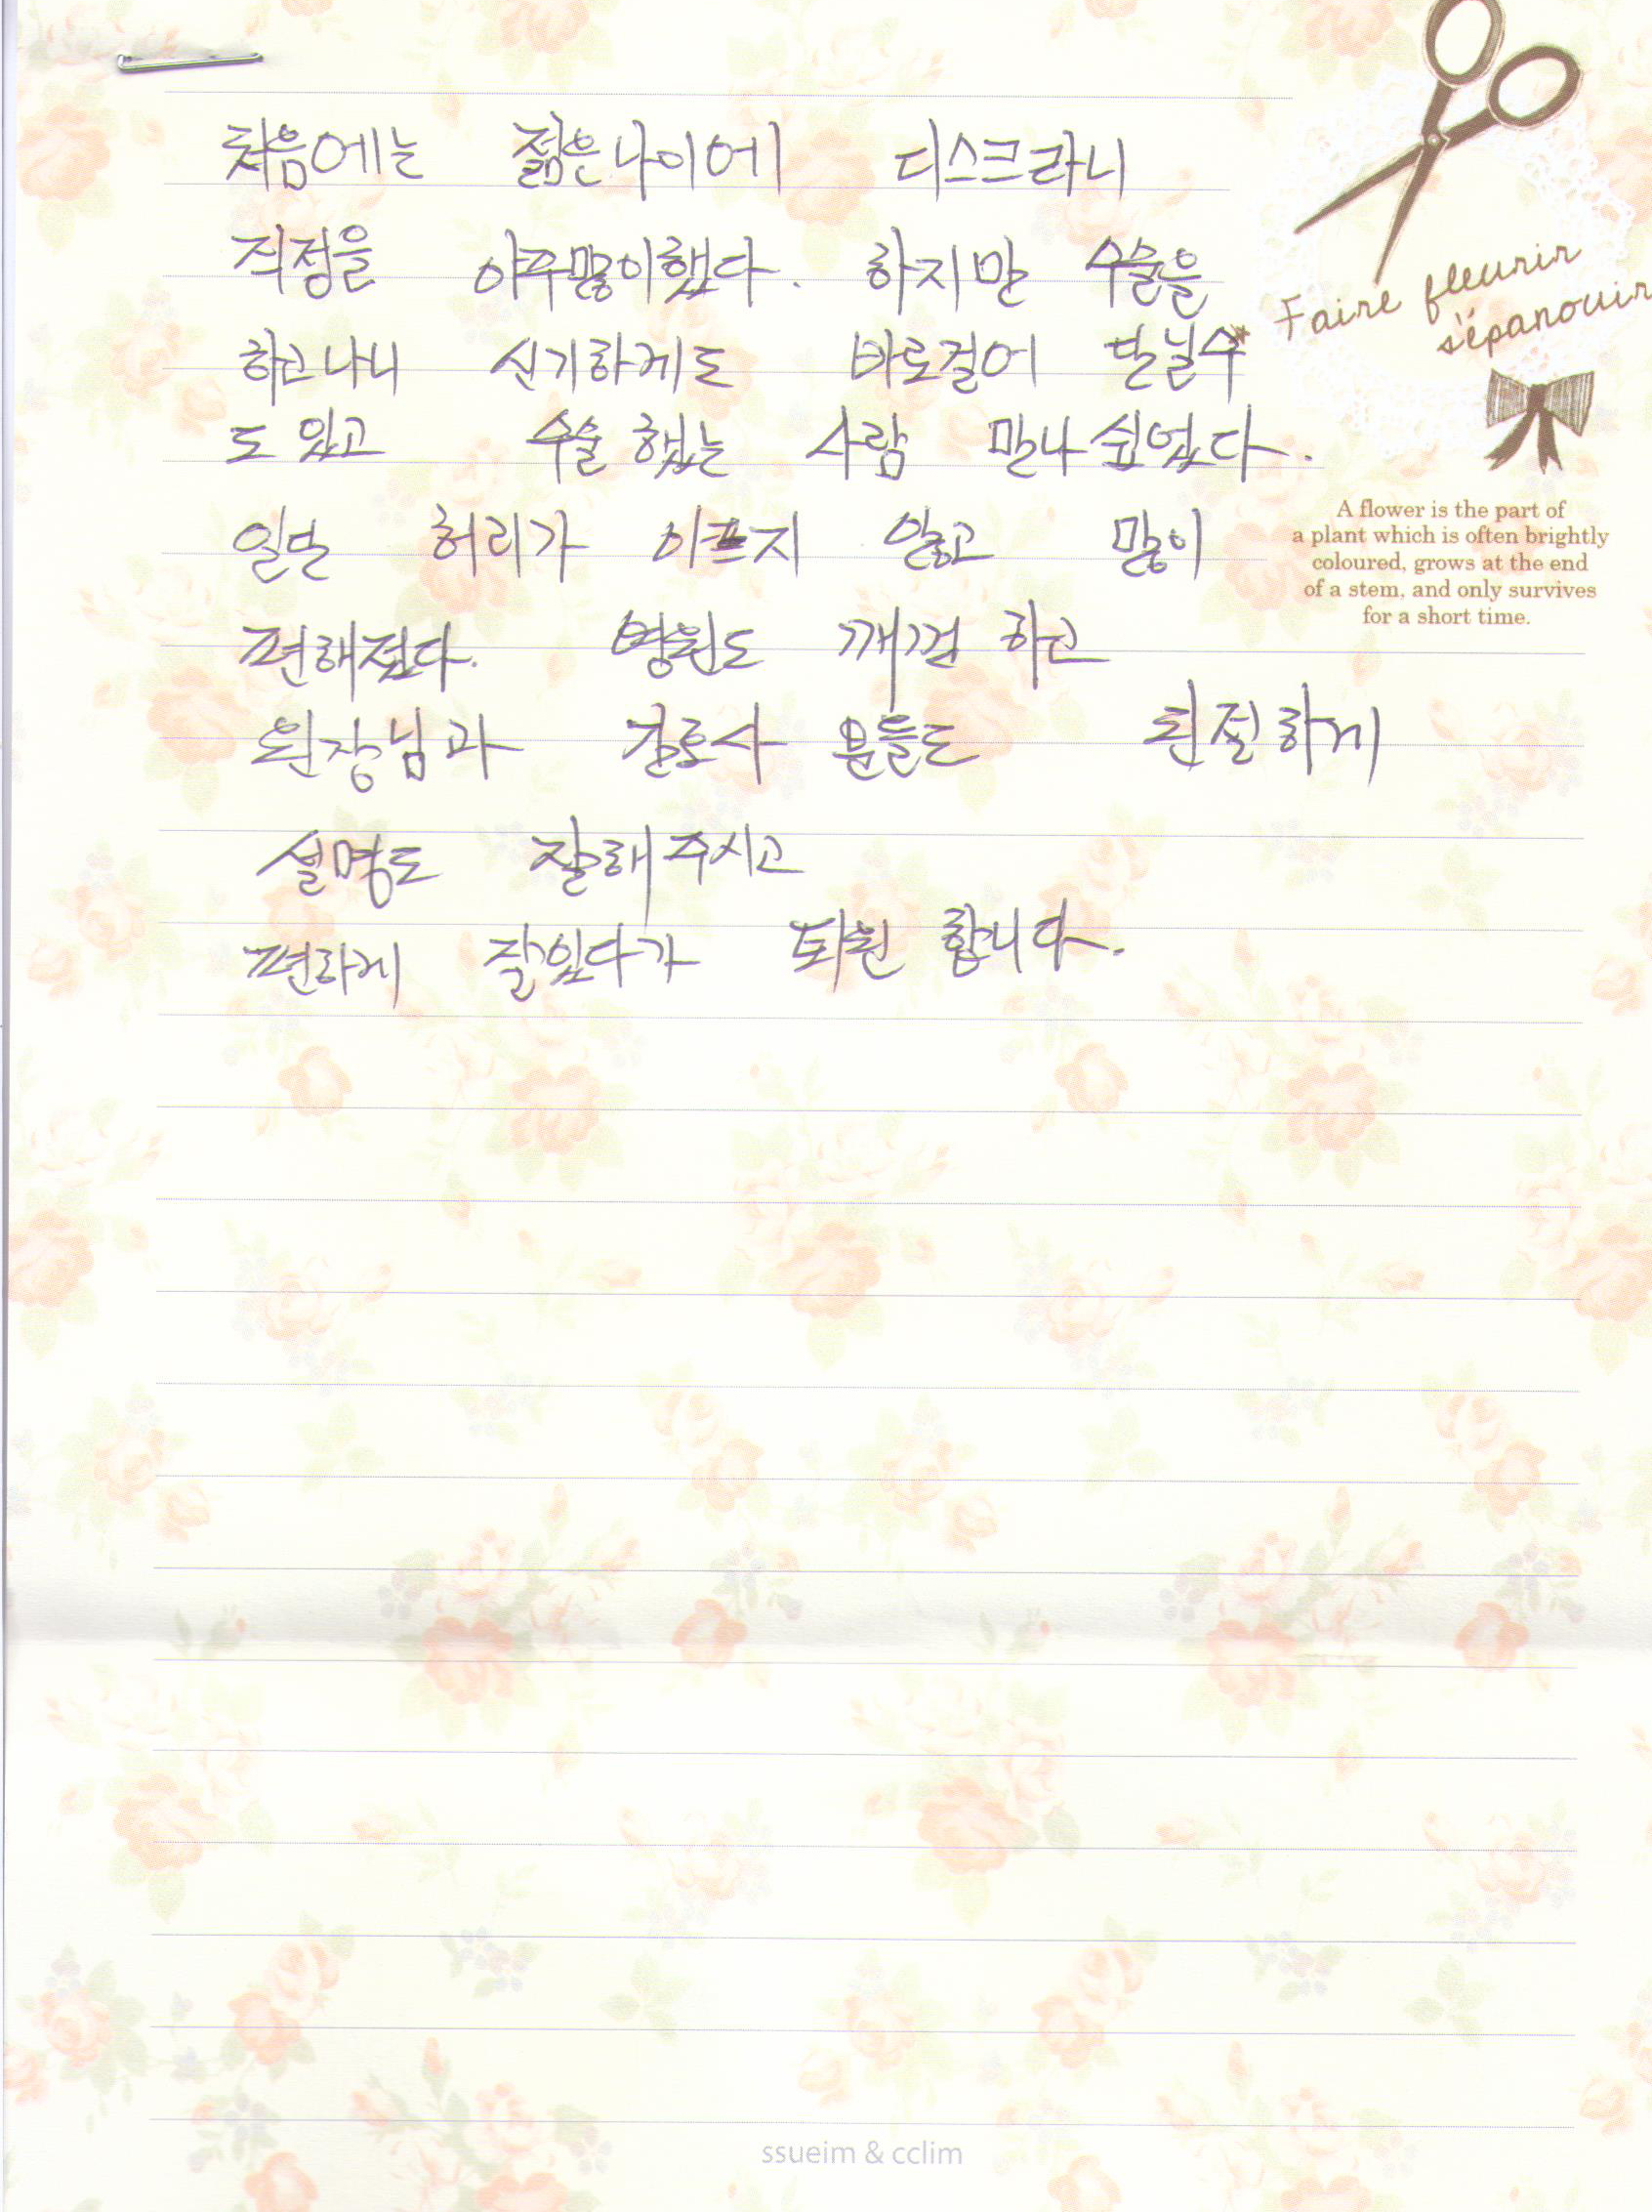 처음에는 젊은나이에 디스크라니
걱정을 아주많이했다. 하지만 수술을
하고나니 신기하게도 바로걸어 다닐수
도 있고 수술 했는 사람 맞나 싶었다.
일단 허리가 아프지 않고 많이
편해졌다. 병원도 깨끗 하고
원장님과 간호사 분들도 친절하게
설명도 잘해주시고
편하게 잘있다가 퇴원 합니다.
Faire fleurir
s'épanouir
A flower is the part of
a plant which is often brightly
coloured, grows at the end
of a stem, and only survives
for a short time.
ssueim & cclim